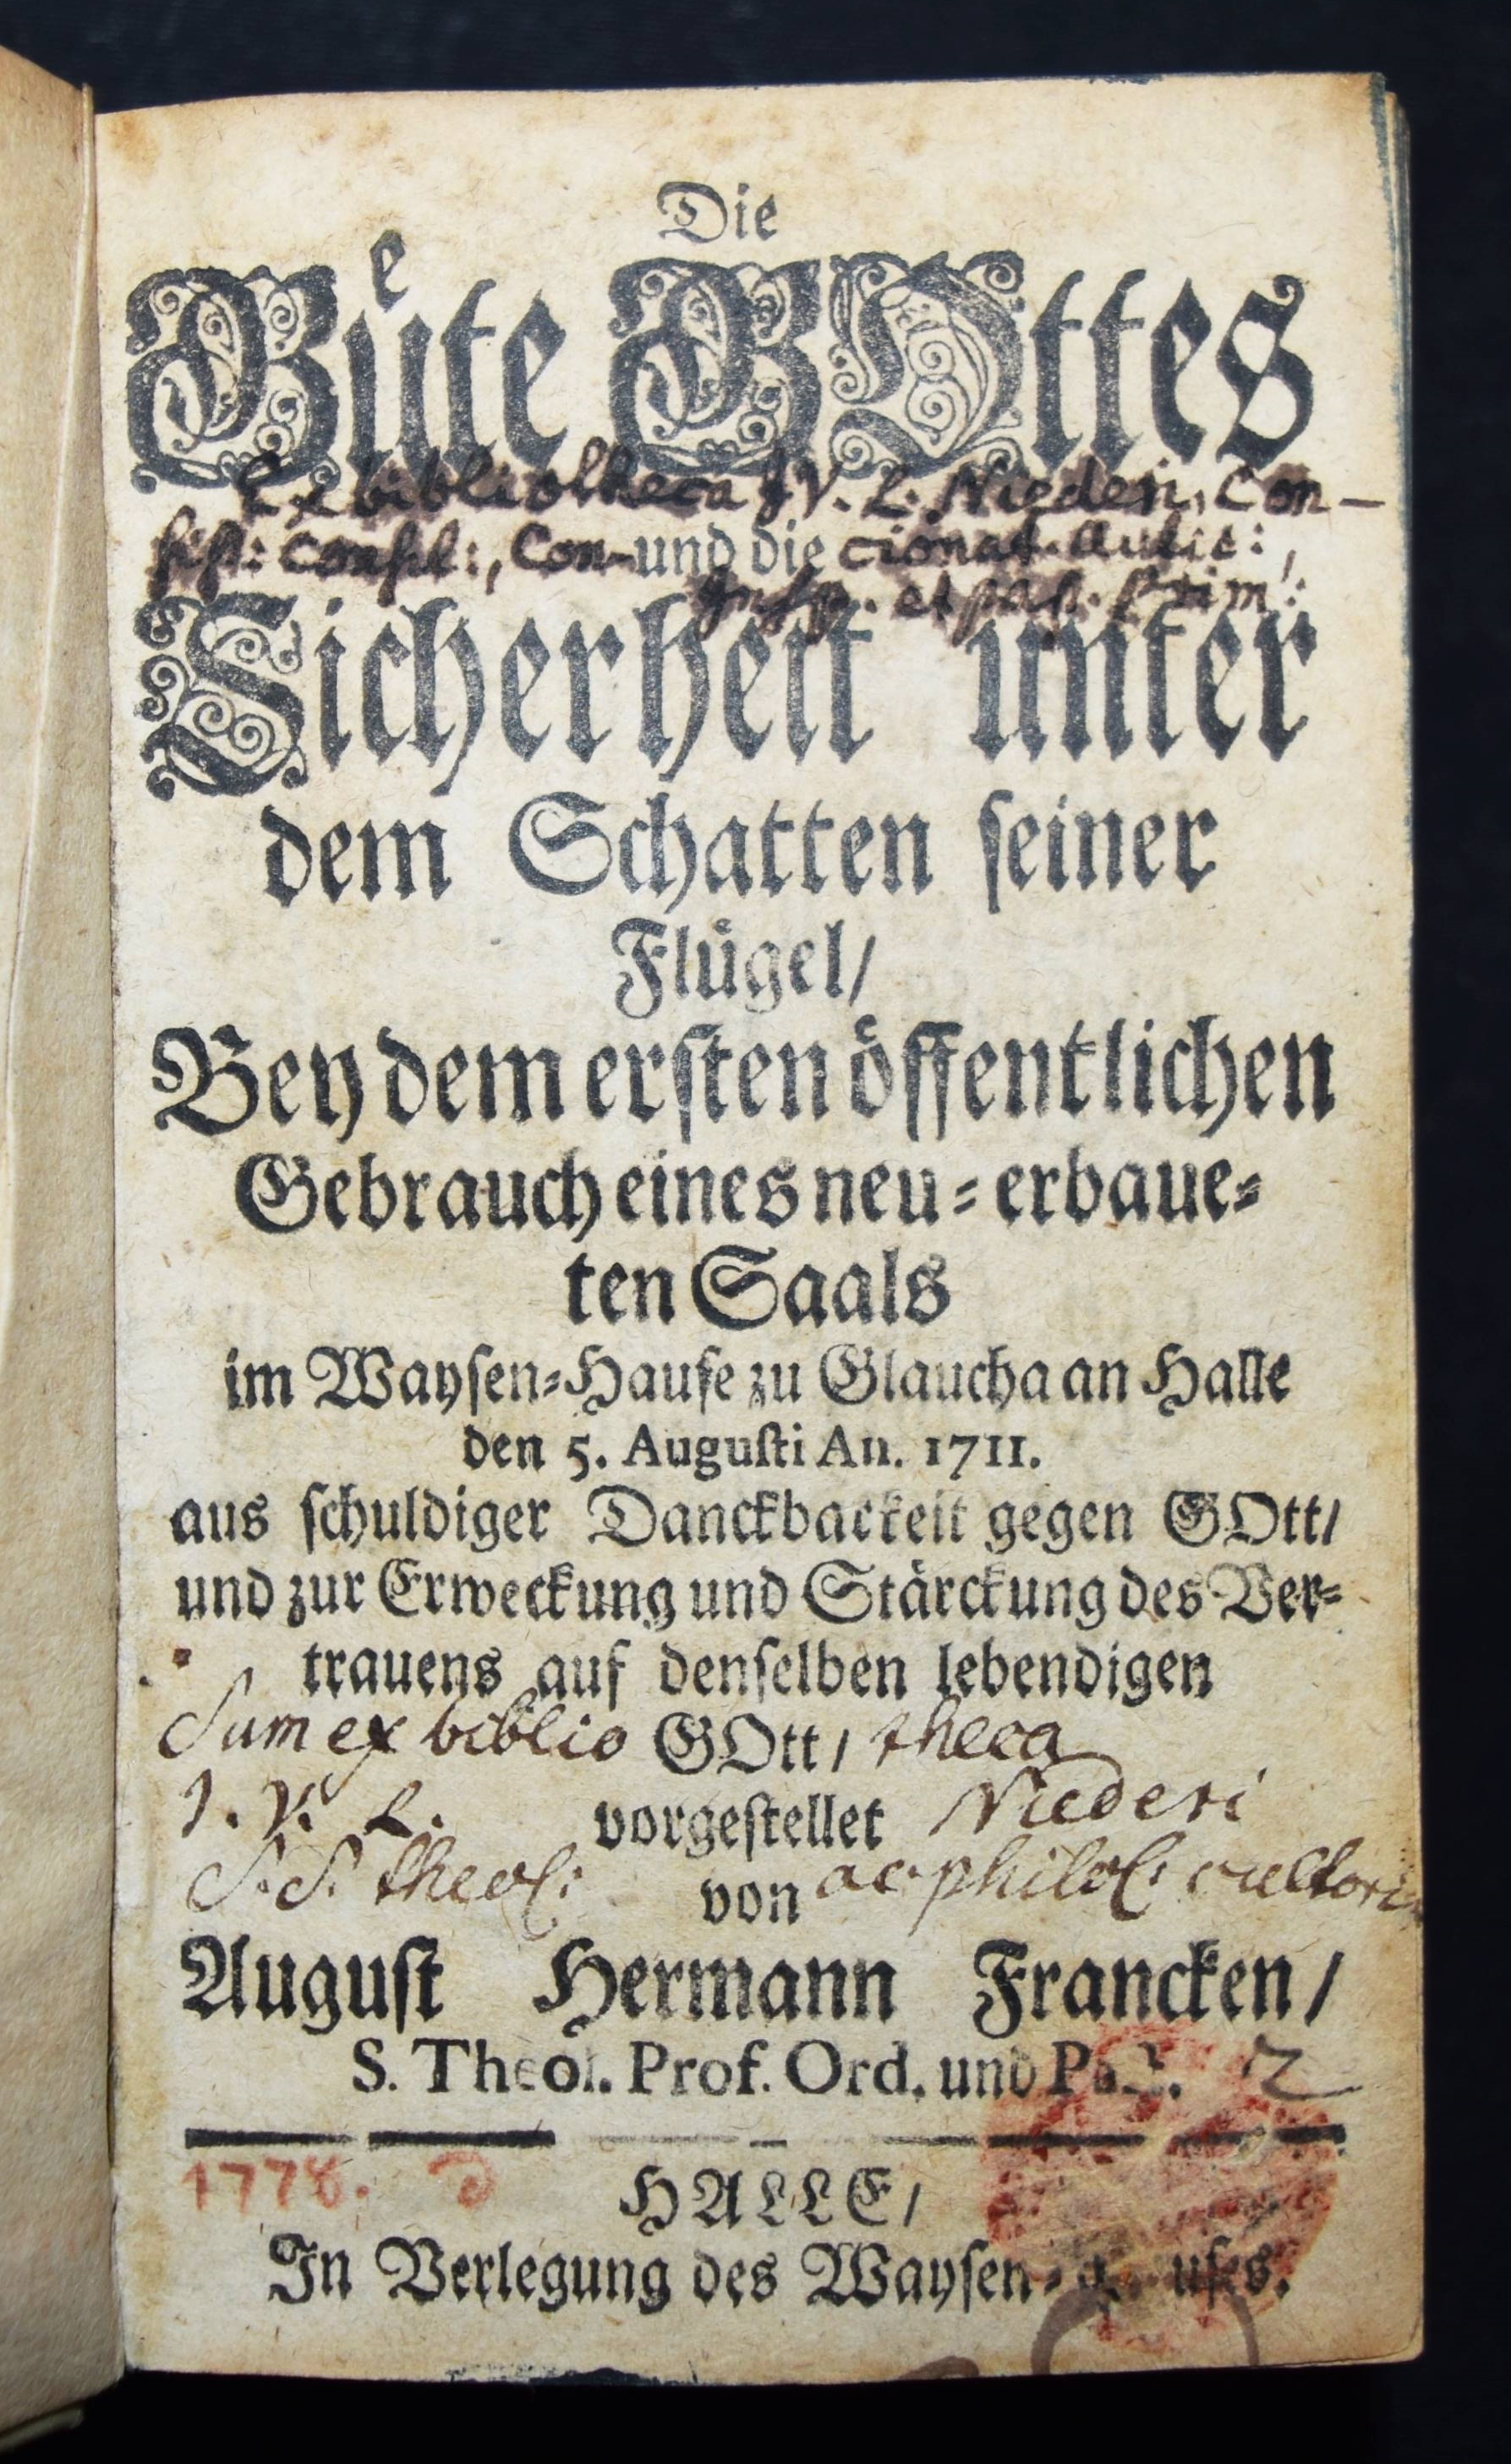 Die
Guͤte GOttes
Ex bibliotheca J. V. L. Niederi, Con-
sist: Consil:, Con- und die cionat. Aulic:,
Insp. et past. Prim:
Sicherheit unter
dem Schatten ſeiner
Fluͤgel/
Bey dem erſten oͤffentlichen
Gebrauch eines neu-erbaue-
ten Saals
im Wayſen-Hauſe zu Glaucha an Halle
den 5. Auguſti An. 1711.
aus ſchuldiger Danckbarkeit gegen GOtt/
und zur Erweckung und Staͤrckung des Ver-
trauens auf denſelben lebendigen
Sum ex biblio GOtt/ theca
J. V. L. vorgeſtellet Niederi
S. S. theol: von ac philol: cultoris
Auguſt Hermann Francken/
S. Theol. Prof. Ord. und 2
1778.
HALLE/
In Verlegung des Wayſen-Hauſes.